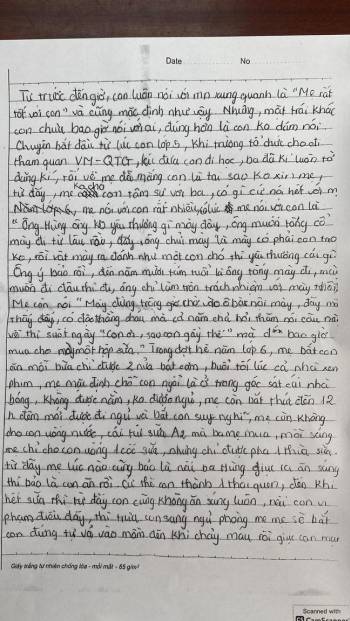 Date No
Từ trước đến giờ, con luôn nói với mn xung quanh là "Mẹ rất
tốt với con" và cũng mặc định như vậy. Nhưng, mặt trái khác
con chưa bao giờ nói với ai, đúng hơn là con ko dám nói.
Chuyện bắt đầu từ lúc con lớp 5, khi trường tổ chức cho đi
tham quan VM-QTGT, lúc đưa con đi học, ba đã kí luôn tờ
đăng kí, rồi về mẹ đã mắng con là tại sao ko xin mẹ,
từ đấy, mẹ ko cho con tâm sự với ba, có gì cứ nói hết với m
Năm lớp 6, mẹ nói với con rất nhiều, mẹ nói với con là
"Ông Hùng ông ko yêu thương gì mày đây, ông muốn tống cổ
mày đi từ lâu rồi, đấy, ông chửi mày là mày có phải con tao
ko, rồi vật mày ra đánh như một con chó thì yêu thương cái gì.
Ông ý bảo rồi, đến năm mười tám tuổi là ông tống mày đi, mày
muốn đi đâu thì đi, ông chỉ làm tròn trách nhiệm với mày thôi."
Mẹ còn nói "Mày đừng trông chờ vào ô bà nội mày, đấy mà
thấy đấy, có đến tháng, mà cả năm chả hỏi thăm nổi câu nào
về thì suốt ngày "Con ơi, sao con gầy thế" mà đã bao giờ
mua cho mày một hộp sữa." Trong đợt hè năm lớp 6, mẹ bắt con
ăn mỗi bữa chỉ được 2 nửa bát cơm, buổi tối lúc cả nhà xem
phim, mẹ mặc định chỗ con ngồi là ở trong góc sát cái nhà
bóng, không được nằm, ko được ngủ, mẹ còn bắt thức đến 12
h đêm mới được đi ngủ và bắt con suy nghĩ, mẹ còn không
cho con uống nước, cái túi sữa A2 mà ba mẹ mua, mỗi sáng
mẹ chỉ cho con uống 1 cốc sữa, nhưng chỉ được pha 1 thìa sữa.
từ đấy mẹ lúc nào cũng bảo là nếu ba Hùng giục ra ăn sáng
thì bảo là con ăn rồi. Cứ thế con thành 1 thói quen, đến khi
hết sữa thì từ đấy con cũng không ăn sáng luôn, nếu con vi
phạm điều đấy, thì trưa con sang ngủ phòng mẹ mẹ sẽ bắt
con đứng tự vả vào mồm đến khi chảy máu rồi giục con mau
Giấy trắng tự nhiên chống lóa - mỏi mắt - 65 g/m²
Scanned with
CamScanner